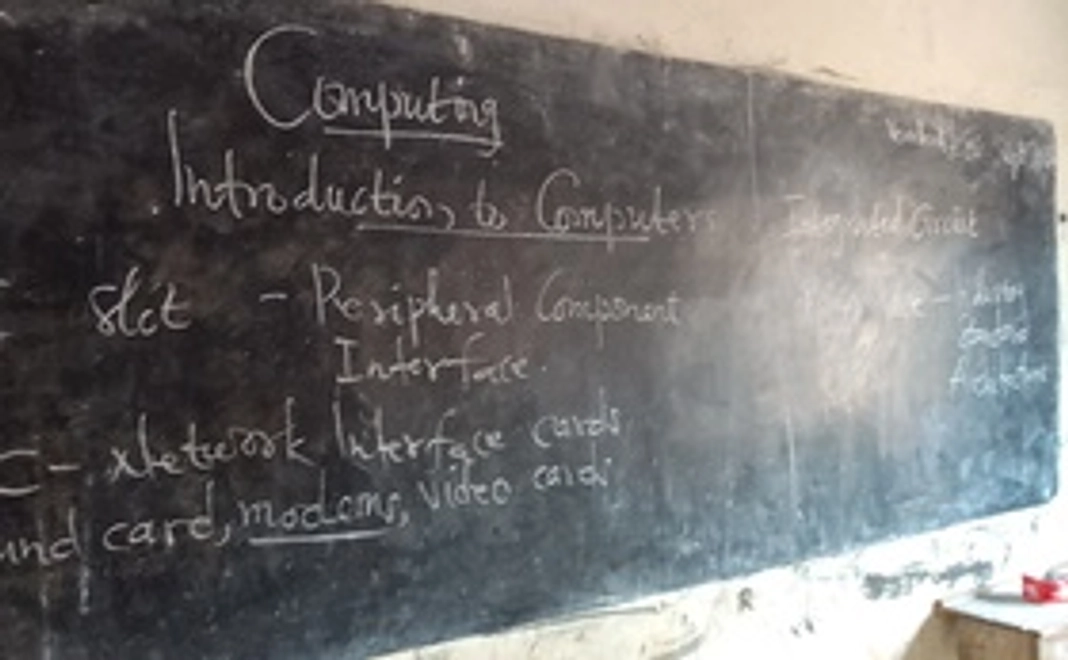 Computing
. Introduction to Computers
slot - Peripheral Component
Interface.
C - Network Interface cards
und card, modems, video cards
Integrated Circuit
Industry
Standard
Architecture